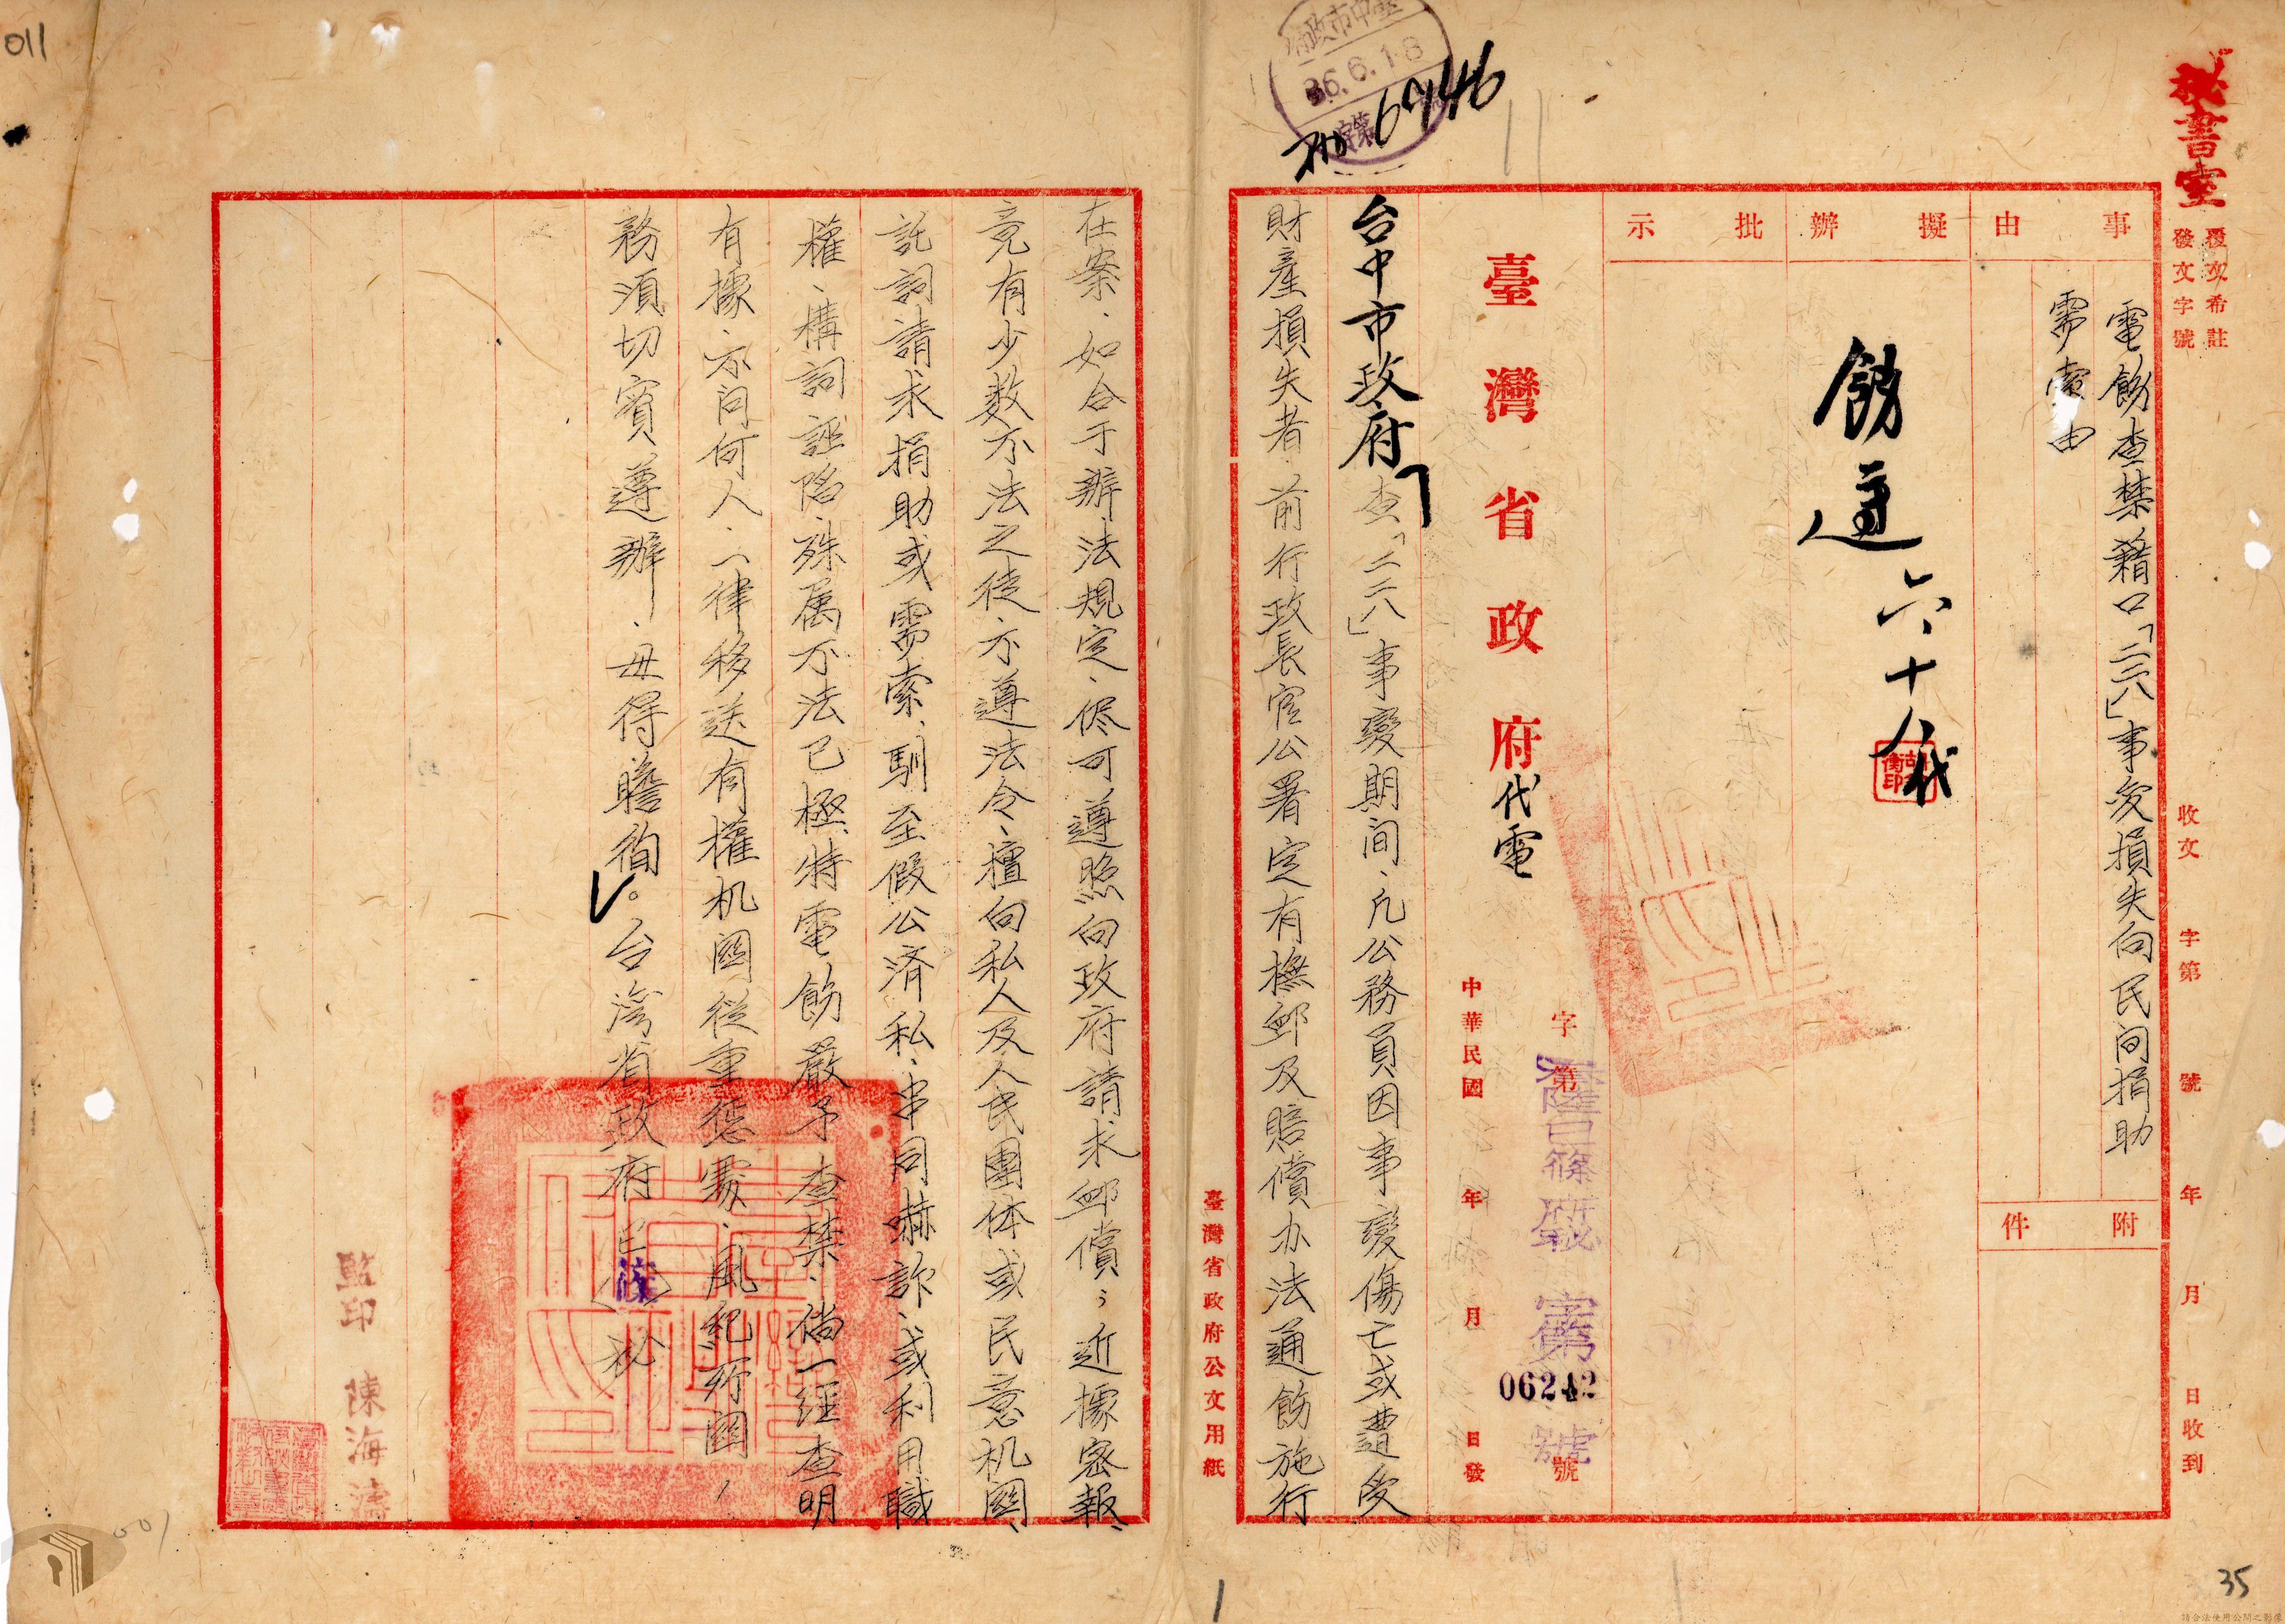 秘書室
覆文希註
發文字號
收文 字第 號 年 月 日收到
事由
電飭查禁藉口「二二八」事變損失向民间捐助
需索由
附件
擬辦
飭遵 六、十八代
批示
臺灣省政府代電
字第 號
06242
中華民國 年 月 日發
台中市政府
查「二二八」事變期间、凡公務員因事變傷亡或遭受
財產損失者、前行政長官公署定有撫卹及賠償办法通飭施行
臺灣省政府公文用紙
36.6.18
6746
在案、如合于辦法規定、儘可遵照向政府請求卹償；近據密報、
竟有少数不法之徒、不遵法令、擅向私人及人民團体或民意机関、
託詞請求捐助或需索、馴至假公済私、串同嚇詐、或利用職
權、構詞誣陷、殊属不法已極、特電飭嚴予查禁、倘一經查明
有據、不问何人、一律移送有權机関從重懲處、風紀所関，
務須切實遵辦、毋得瞻徇。台湾省政府 巳 秘
監印 陳海濤
011
001
35
請合法使用公開之影像